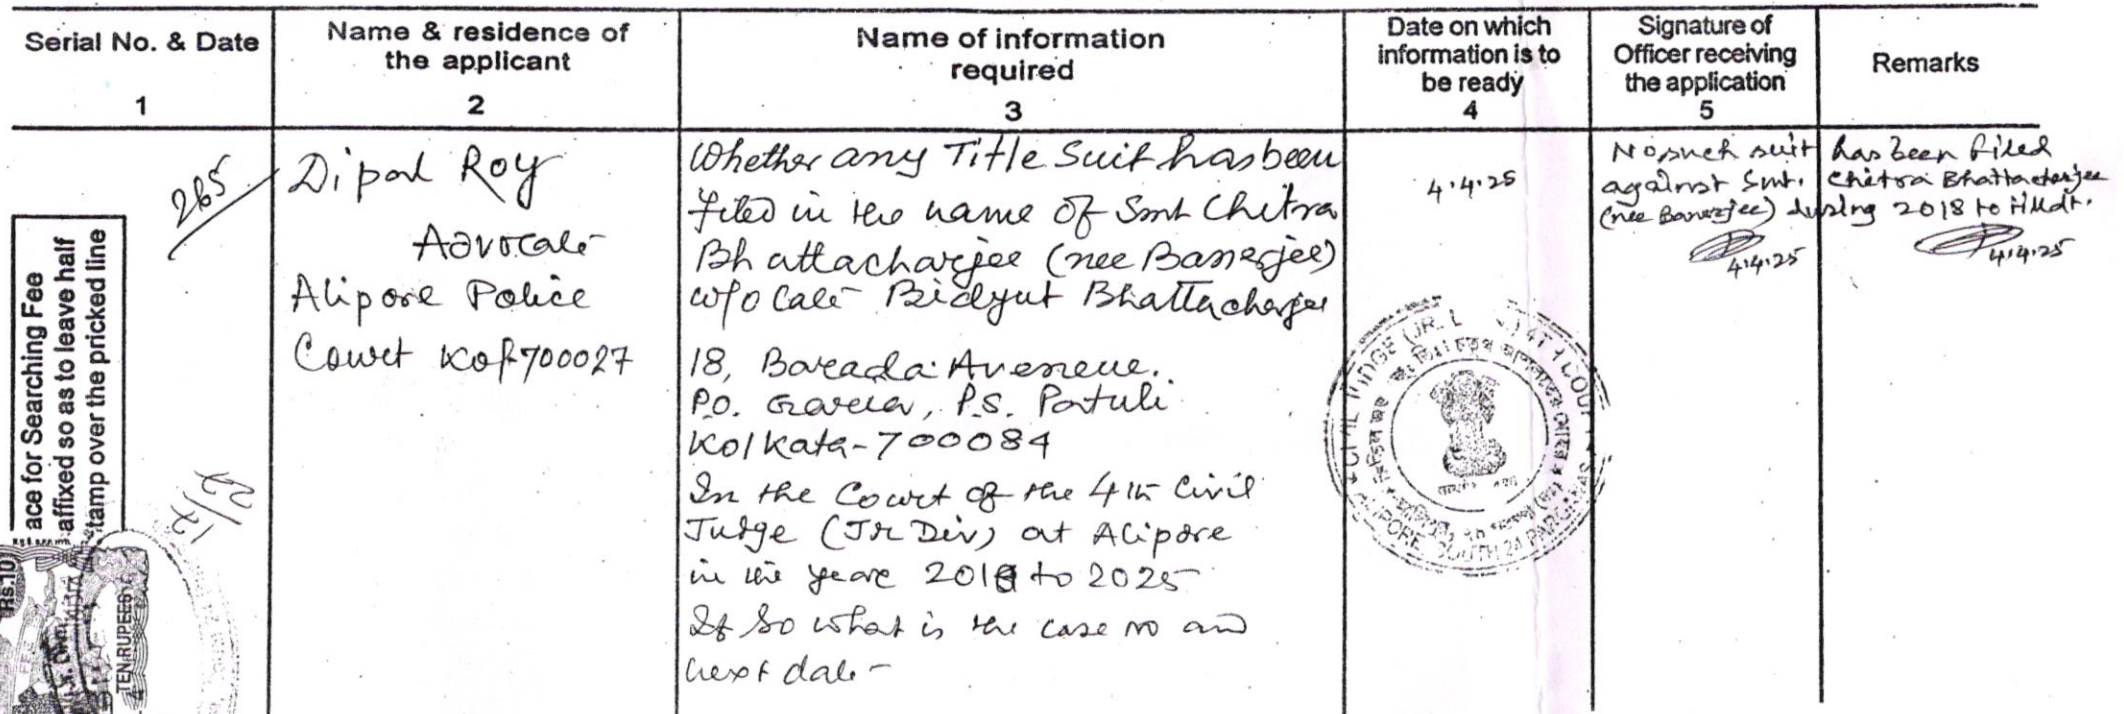 Serial No. & Date
1
Name & residence of
the applicant
2
Name of information
required
3
Date on which
information is to
be ready
4
Signature of
Officer receiving
the application
5
Remarks
265
Dipak Roy
Advocate
Alipore Police
Court Kol-700027
Whether any Title Suit has been
filed in the name of Smt Chitra
Bhattacharjee (nee Banerjee)
w/o Late Bidyut Bhattacharjee
18, Baroada Avenue.
P.O. Garia, P.S. Patuli
Kolkata-700084
In the Court of the 4th Civil
Judge (Jr Div) at Alipore
in the year 2018 to 2025
If so what is the case no and
next date-
4.4.25
No such suit has been filed
against Smt. Chitra Bhattacharjee
(nee Banerjee) during 2018 to
4.4.25
4.4.25
ace for Searching Fee
affixed so as to leave half
tamp over the pricked line
Rs.10
TEN RUPEES
CIVIL JUDGE (JR.
ALIPORE SOUTH 24 PARG